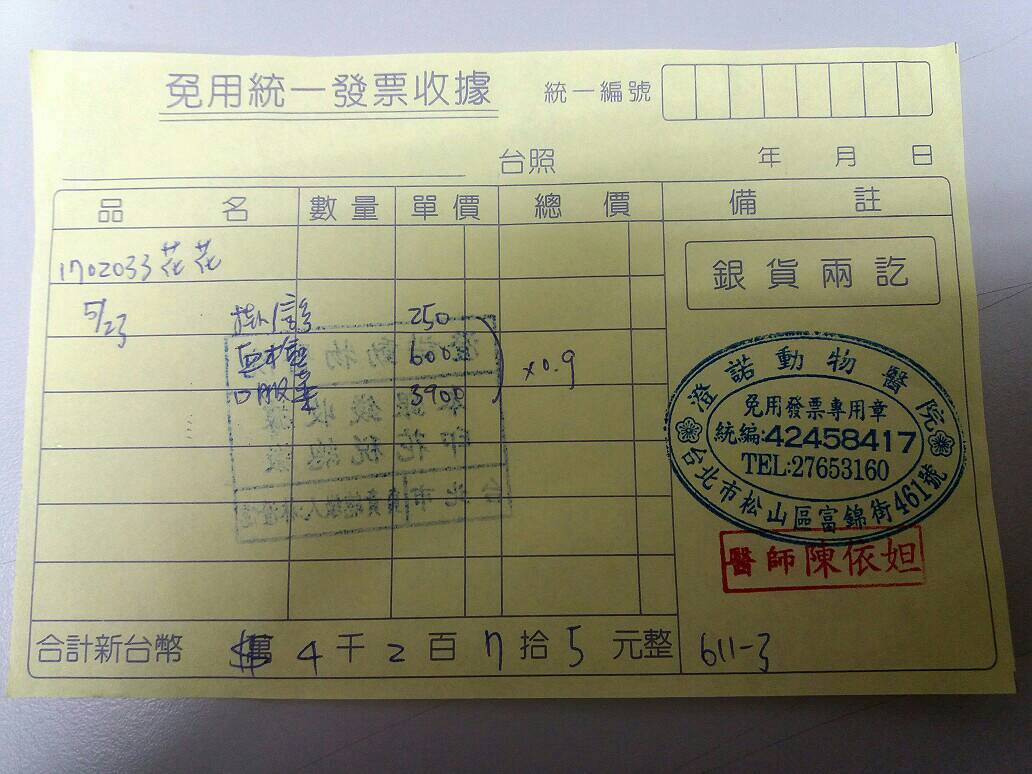 免用統一發票收據
統一編號
台照 年 月 日
品名 數量 單價 總價 備註
1702033 花花
銀貨兩訖
5/23 掛/診 250
血檢 600
口服藥 3900
x0.9
澄諾動物醫院
免用發票專用章
統編:42458417
TEL:27653160
台北市松山區富錦街461號
醫師陳依妲
合計新台幣 萬 4 千 2 百 7 拾 5 元整
611-3